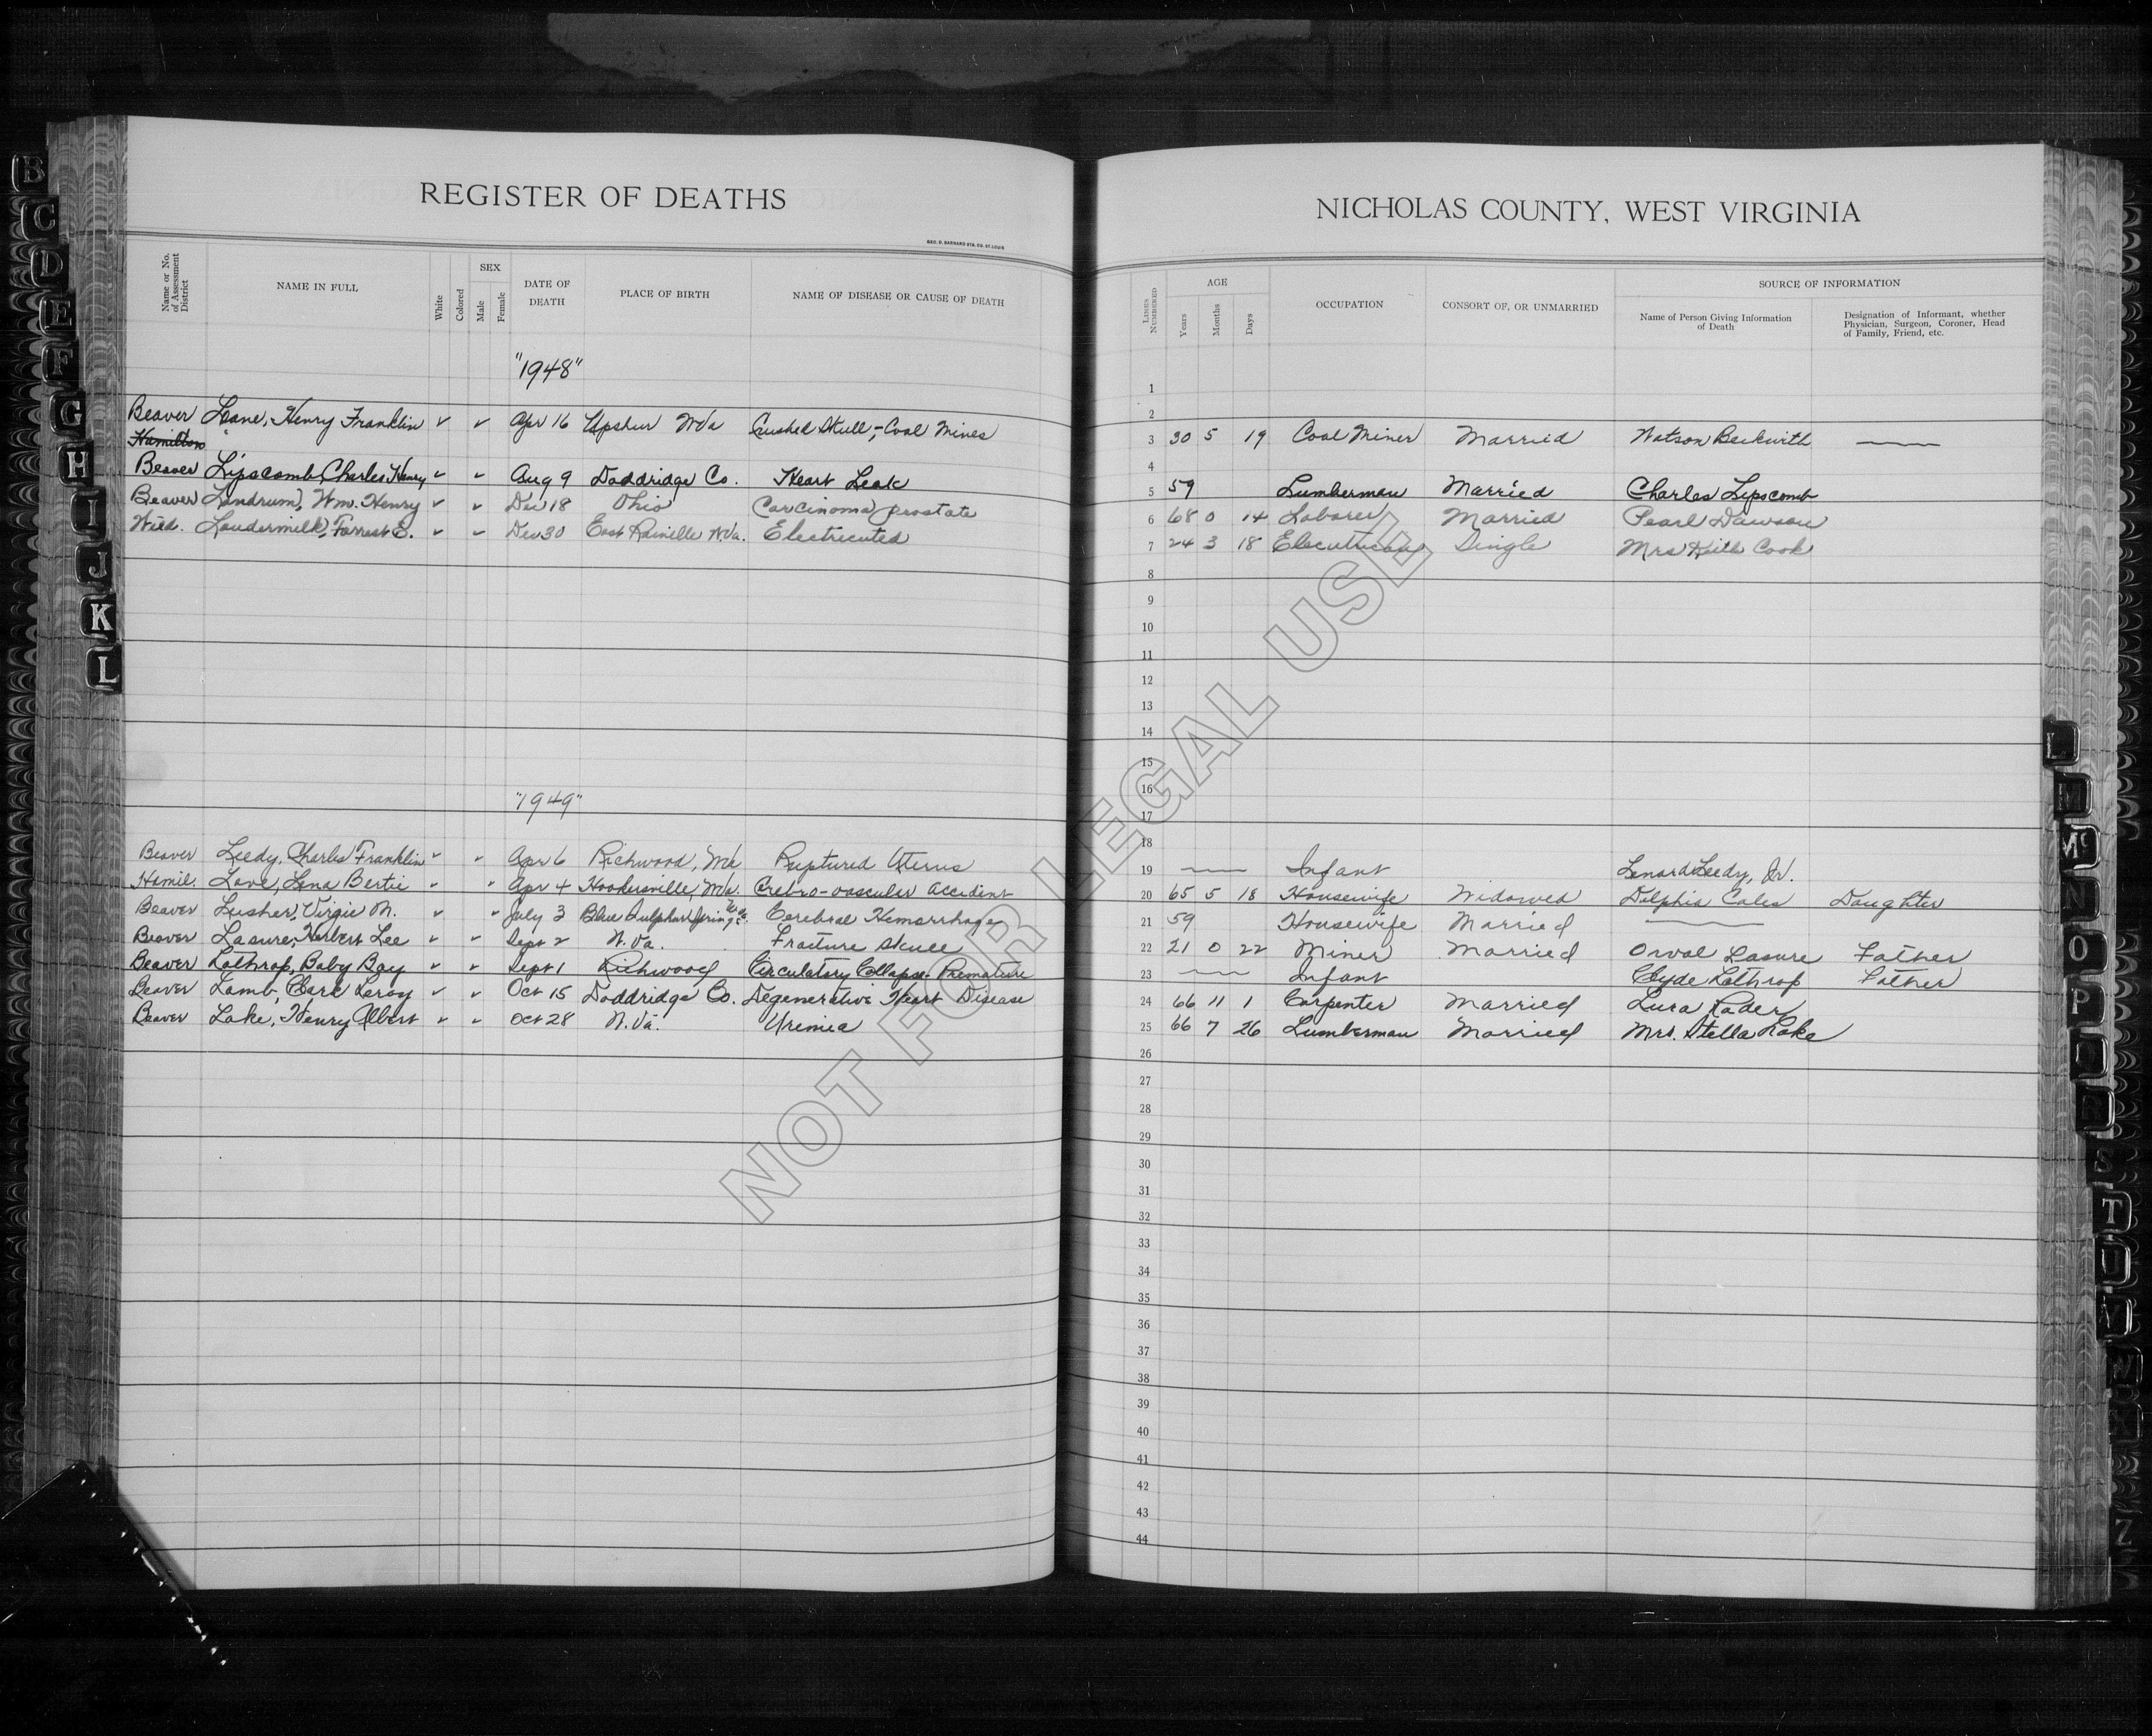 REGISTER OF DEATHS
GEO. D. BARNARD STA. CO. ST. LOUIS
Name or No. of Assessment District
NAME IN FULL
White
Colored
SEX
Male
Female
DATE OF DEATH
PLACE OF BIRTH
NAME OF DISEASE OR CAUSE OF DEATH
"1948"
Beaver Lane, Henry Franklin ✓ ✓ Apr 16 Upshur W Va Crushed Skull,- Coal Mines
Hamilton
Beaver Lipscomb, Charles Henry ✓ ✓ Aug 9 Doddridge Co. Heart Leak
Beaver Landrum, Wm. Henry ✓ ✓ Dec 18 Ohio Carcinoma prostate
Wild. Loudermilk, Forrest E. ✓ ✓ Dec 30 East Rainelle W.Va. Electricuted
"1949"
Beaver Leedy, Charles Franklin ✓ ✓ Apr 6 Richwood, W Va Ruptured Uterus
Hamil. Love, Lena Bertie ✓ ✓ Apr 4 Hookersville, W Va. Crebro-vascular accident
Beaver Lusher, Virgie M. ✓ ✓ July 3 Blue Sulphur Springs W. Va. Cerebral Hemorrhage
Beaver Lasure, Herbert Lee ✓ ✓ Sept 2 W. Va. Fracture Skull
Beaver Lothrop, Baby Boy ✓ ✓ Sept 1 Richwood Circulatory Collapse- Premature
Beaver Lamb, Leroy ✓ ✓ Oct 15 Doddridge Co. Degenerative Heart Disease
Beaver Lake, Henry Albert ✓ ✓ Oct 28 W. Va. Uremia
NICHOLAS COUNTY, WEST VIRGINIA
LINES NUMBERED
AGE
Years
Months
Days
OCCUPATION
CONSORT OF, OR UNMARRIED
SOURCE OF INFORMATION
Name of Person Giving Information of Death
Designation of Informant, whether Physician, Surgeon, Coroner, Head of Family, Friend, etc.
1
2
3 30 5 19 Coal Miner Married Watson Beckwith
4
5 59 Lumberman Married Charles Lipscomb
6 68 0 14 Laborer Married Pearl Dawson
7 24 3 18 Single Mrs Keith Cook
8
9
10
11
12
13
14
15
16
17
18
19 Infant Lenard Leedy, Jr.
20 65 5 18 Housewife Widowed Delphia Cales Daughter
21 59 Housewife Married
22 21 0 22 Miner Married Orval Lasure Father
23 Infant Clyde Lothrop Father
24 66 11 1 Carpenter Married Lura Rader
25 66 7 26 Lumberman Married Mrs. Stella Lake
26
27
28
29
30
31
32
33
34
35
36
37
38
39
40
41
42
43
44
NOT FOR LEGAL USE
B
C
D
E
F
G
H
I
J
K
L
L
Mc
N
O
P
T
U
V
Z